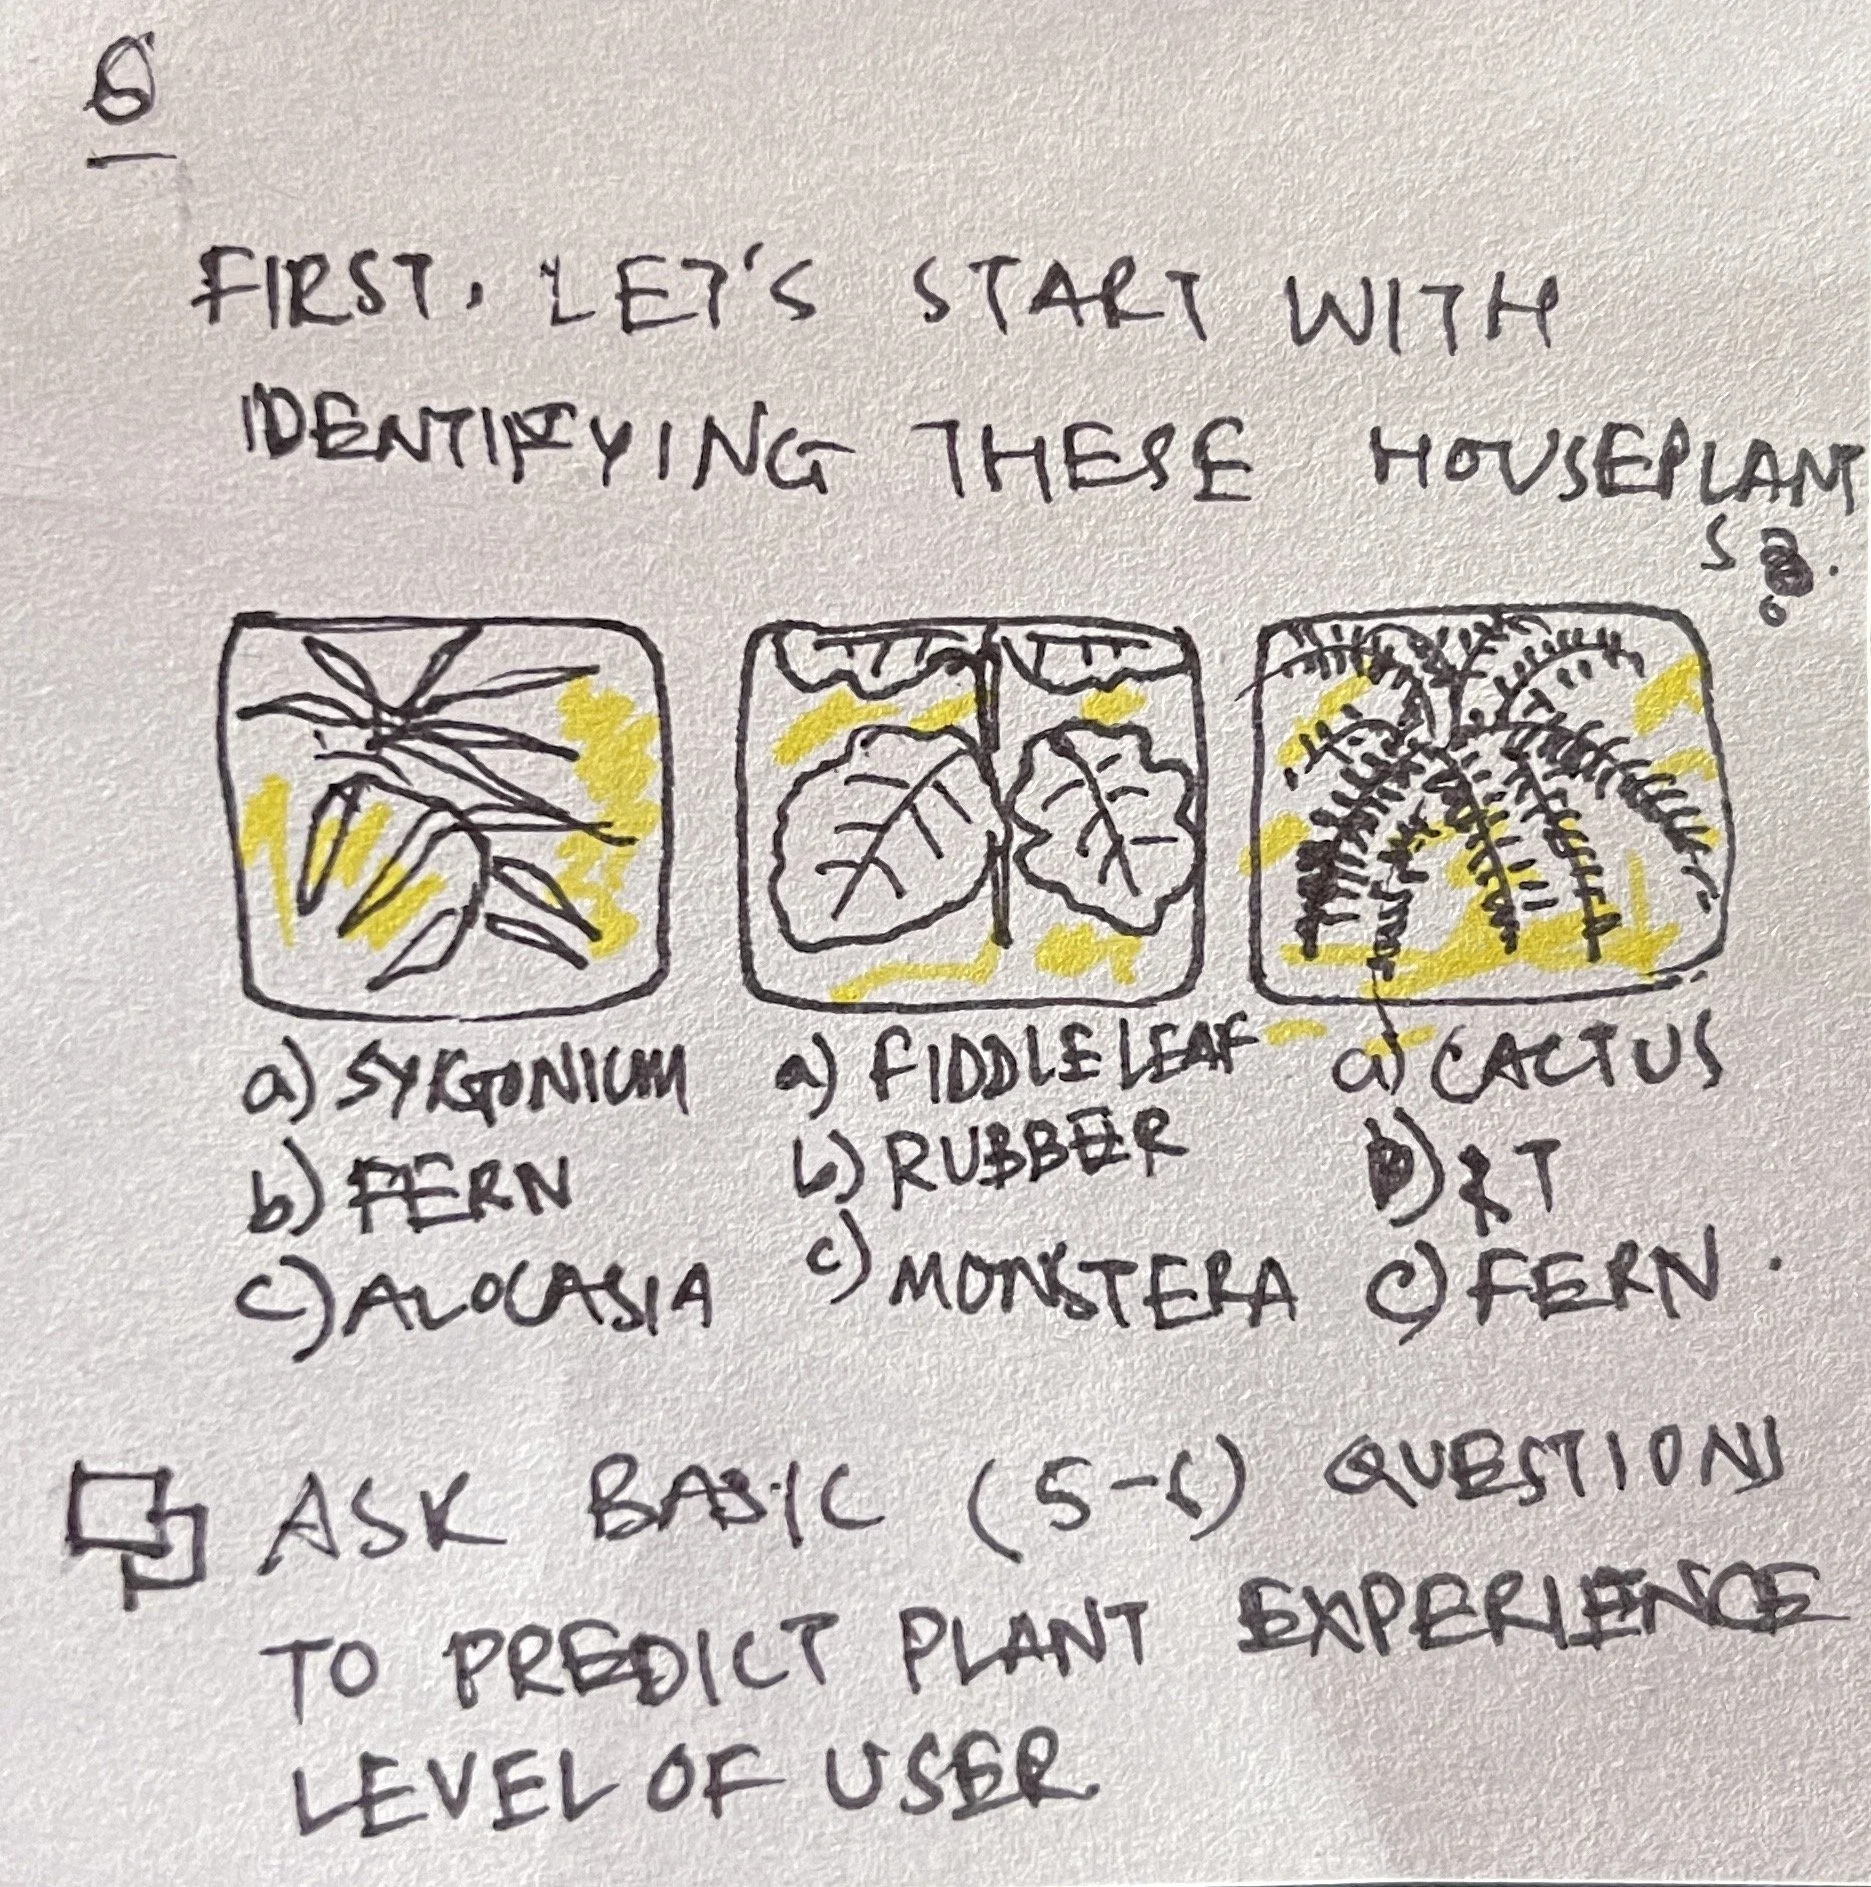 6
FIRST, LET'S START WITH
IDENTIFYING THESE HOUSEPLANT
S
a) SYNGONIUM
b) FERN
c) ALOCASIA
a) FIDDLE LEAF
b) RUBBER
c) MONSTERA
a) CACTUS
b) ZT
c) FERN.
ASK BASIC (5-6) QUESTIONS
TO PREDICT PLANT EXPERIENCE
LEVEL OF USER.